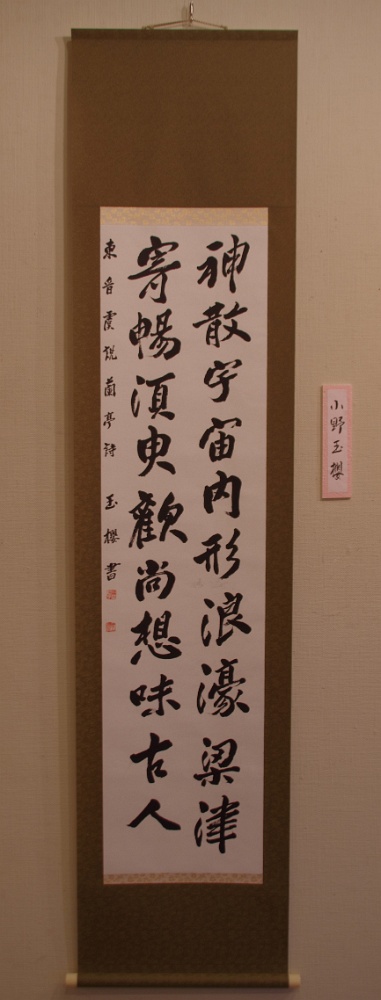 神散宇宙内形浪濠梁津
寄暢須臾歡尚想味古人
東晋虞説蘭亭詩 玉櫻書
小野玉櫻